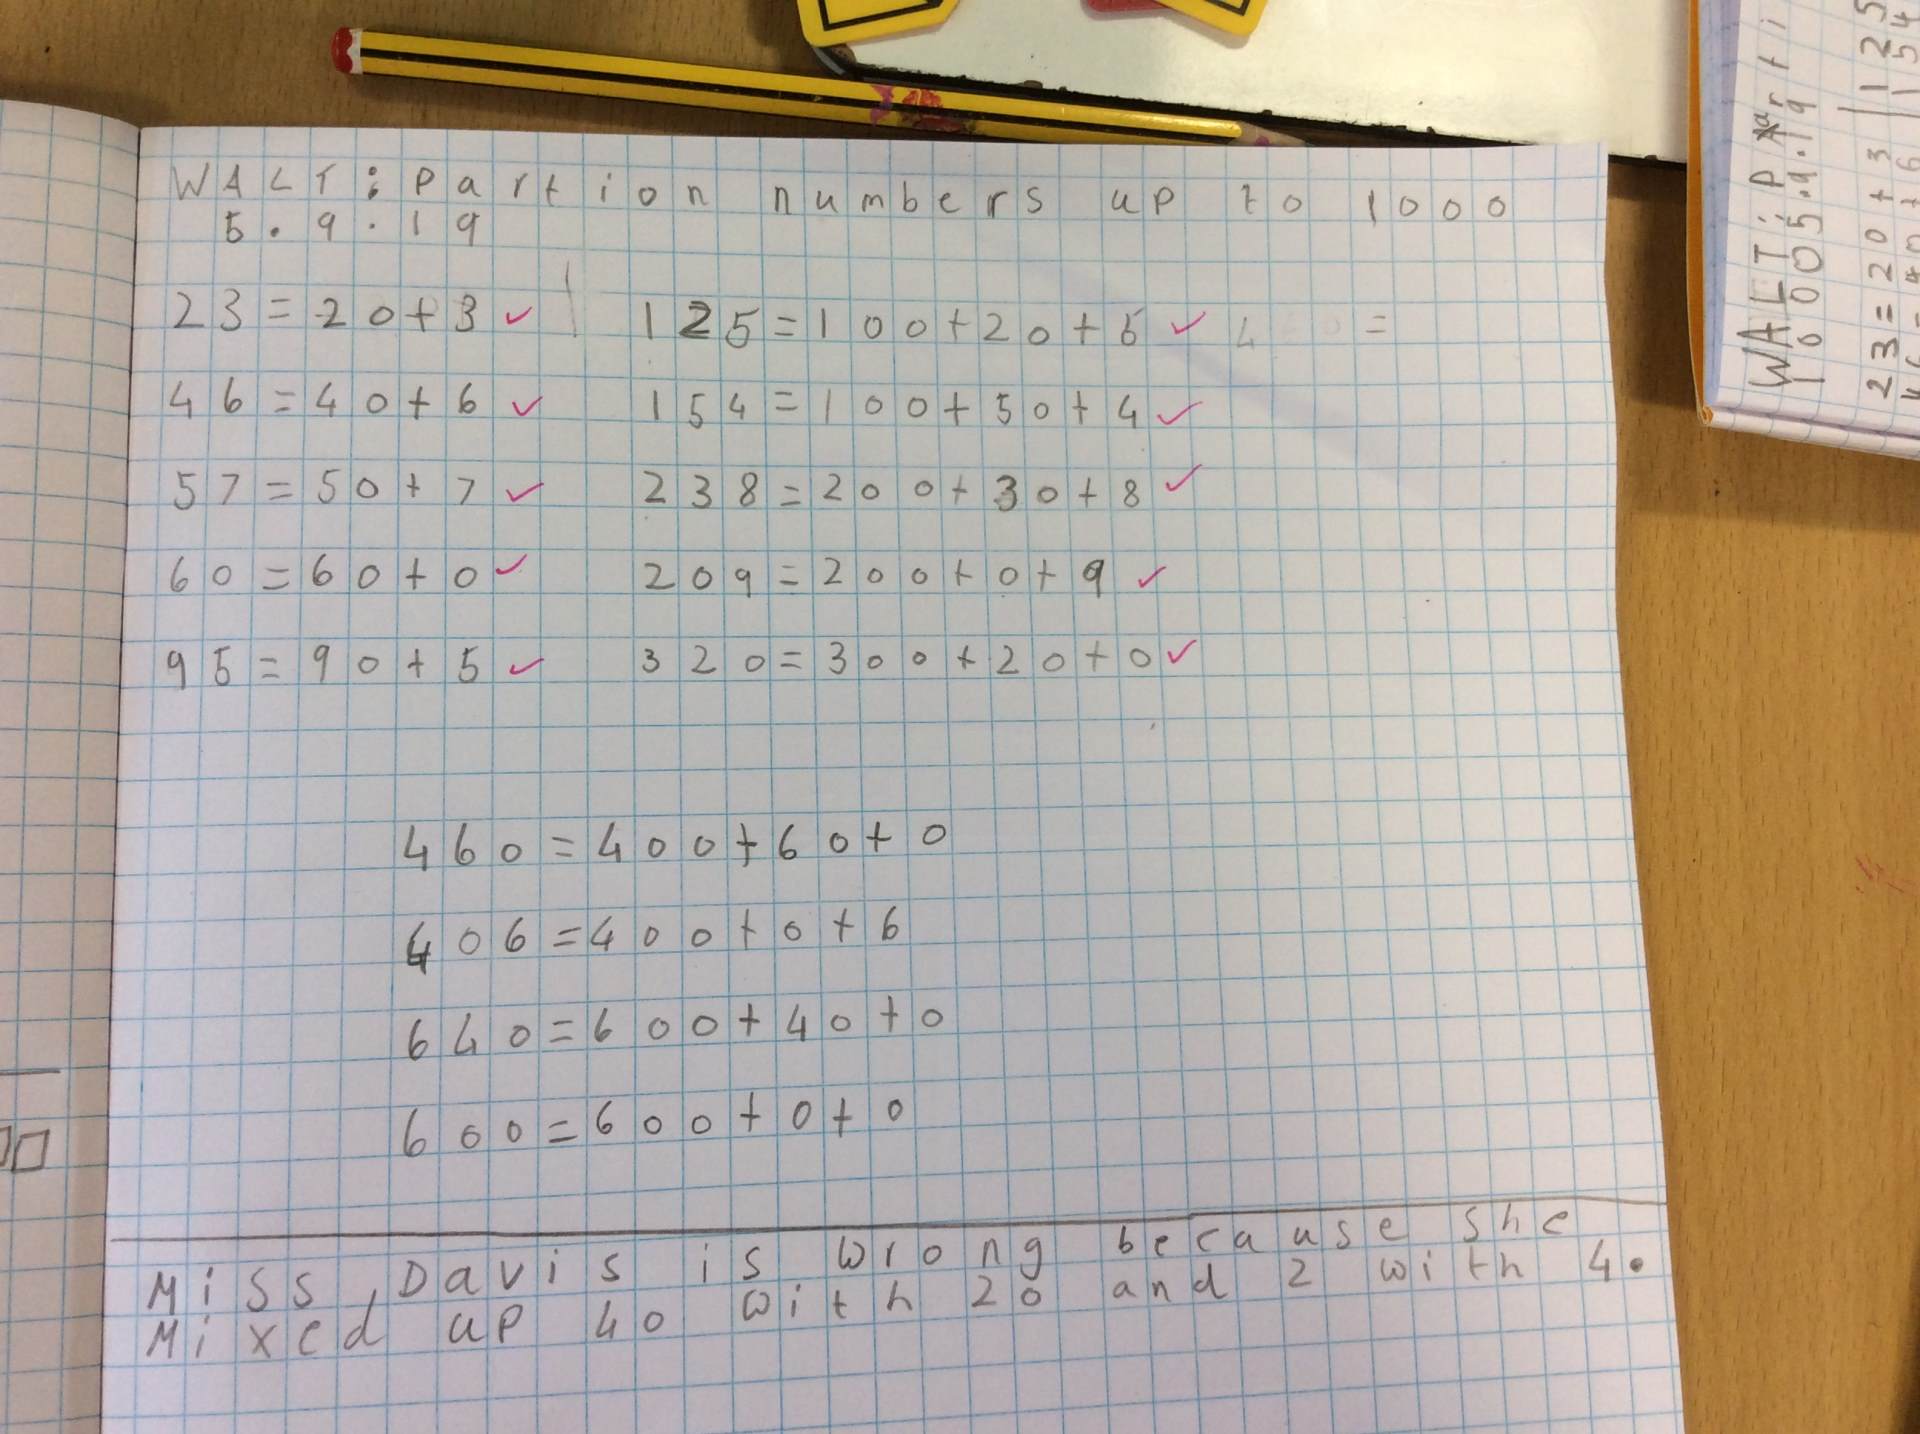 WALT: Partion numbers up to 1000
5.9.19
23=20+3 ✓ 125=100+20+5 ✓ 4 =
46=40+6 ✓ 154=100+50+4 ✓
57=50+7 ✓ 238=200+30+8 ✓
60=60+0 ✓ 209=200+0+9 ✓
95=90+5 ✓ 320=300+20+0 ✓
460=400+60+0
406=400+0+6
640=600+40+0
600=600+0+0
Miss, Davis is wrong because she
Mixed up 40 with 20 and 2 with 4.
WALT: Parti
10005.9.19
23=20+3 125
154